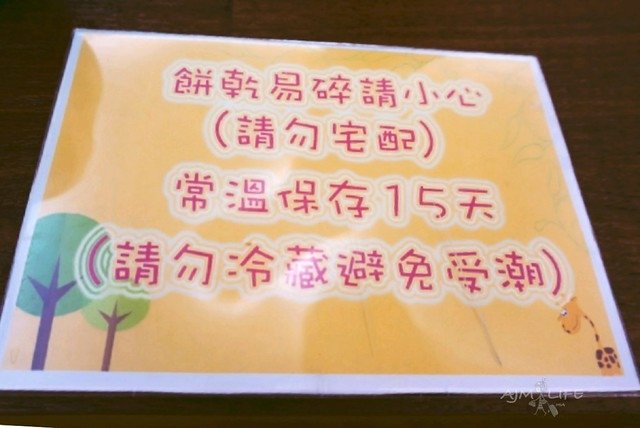 餅乾易碎請小心
(請勿宅配)
常溫保存15天
(請勿冷藏避免受潮)
AJM LIFE